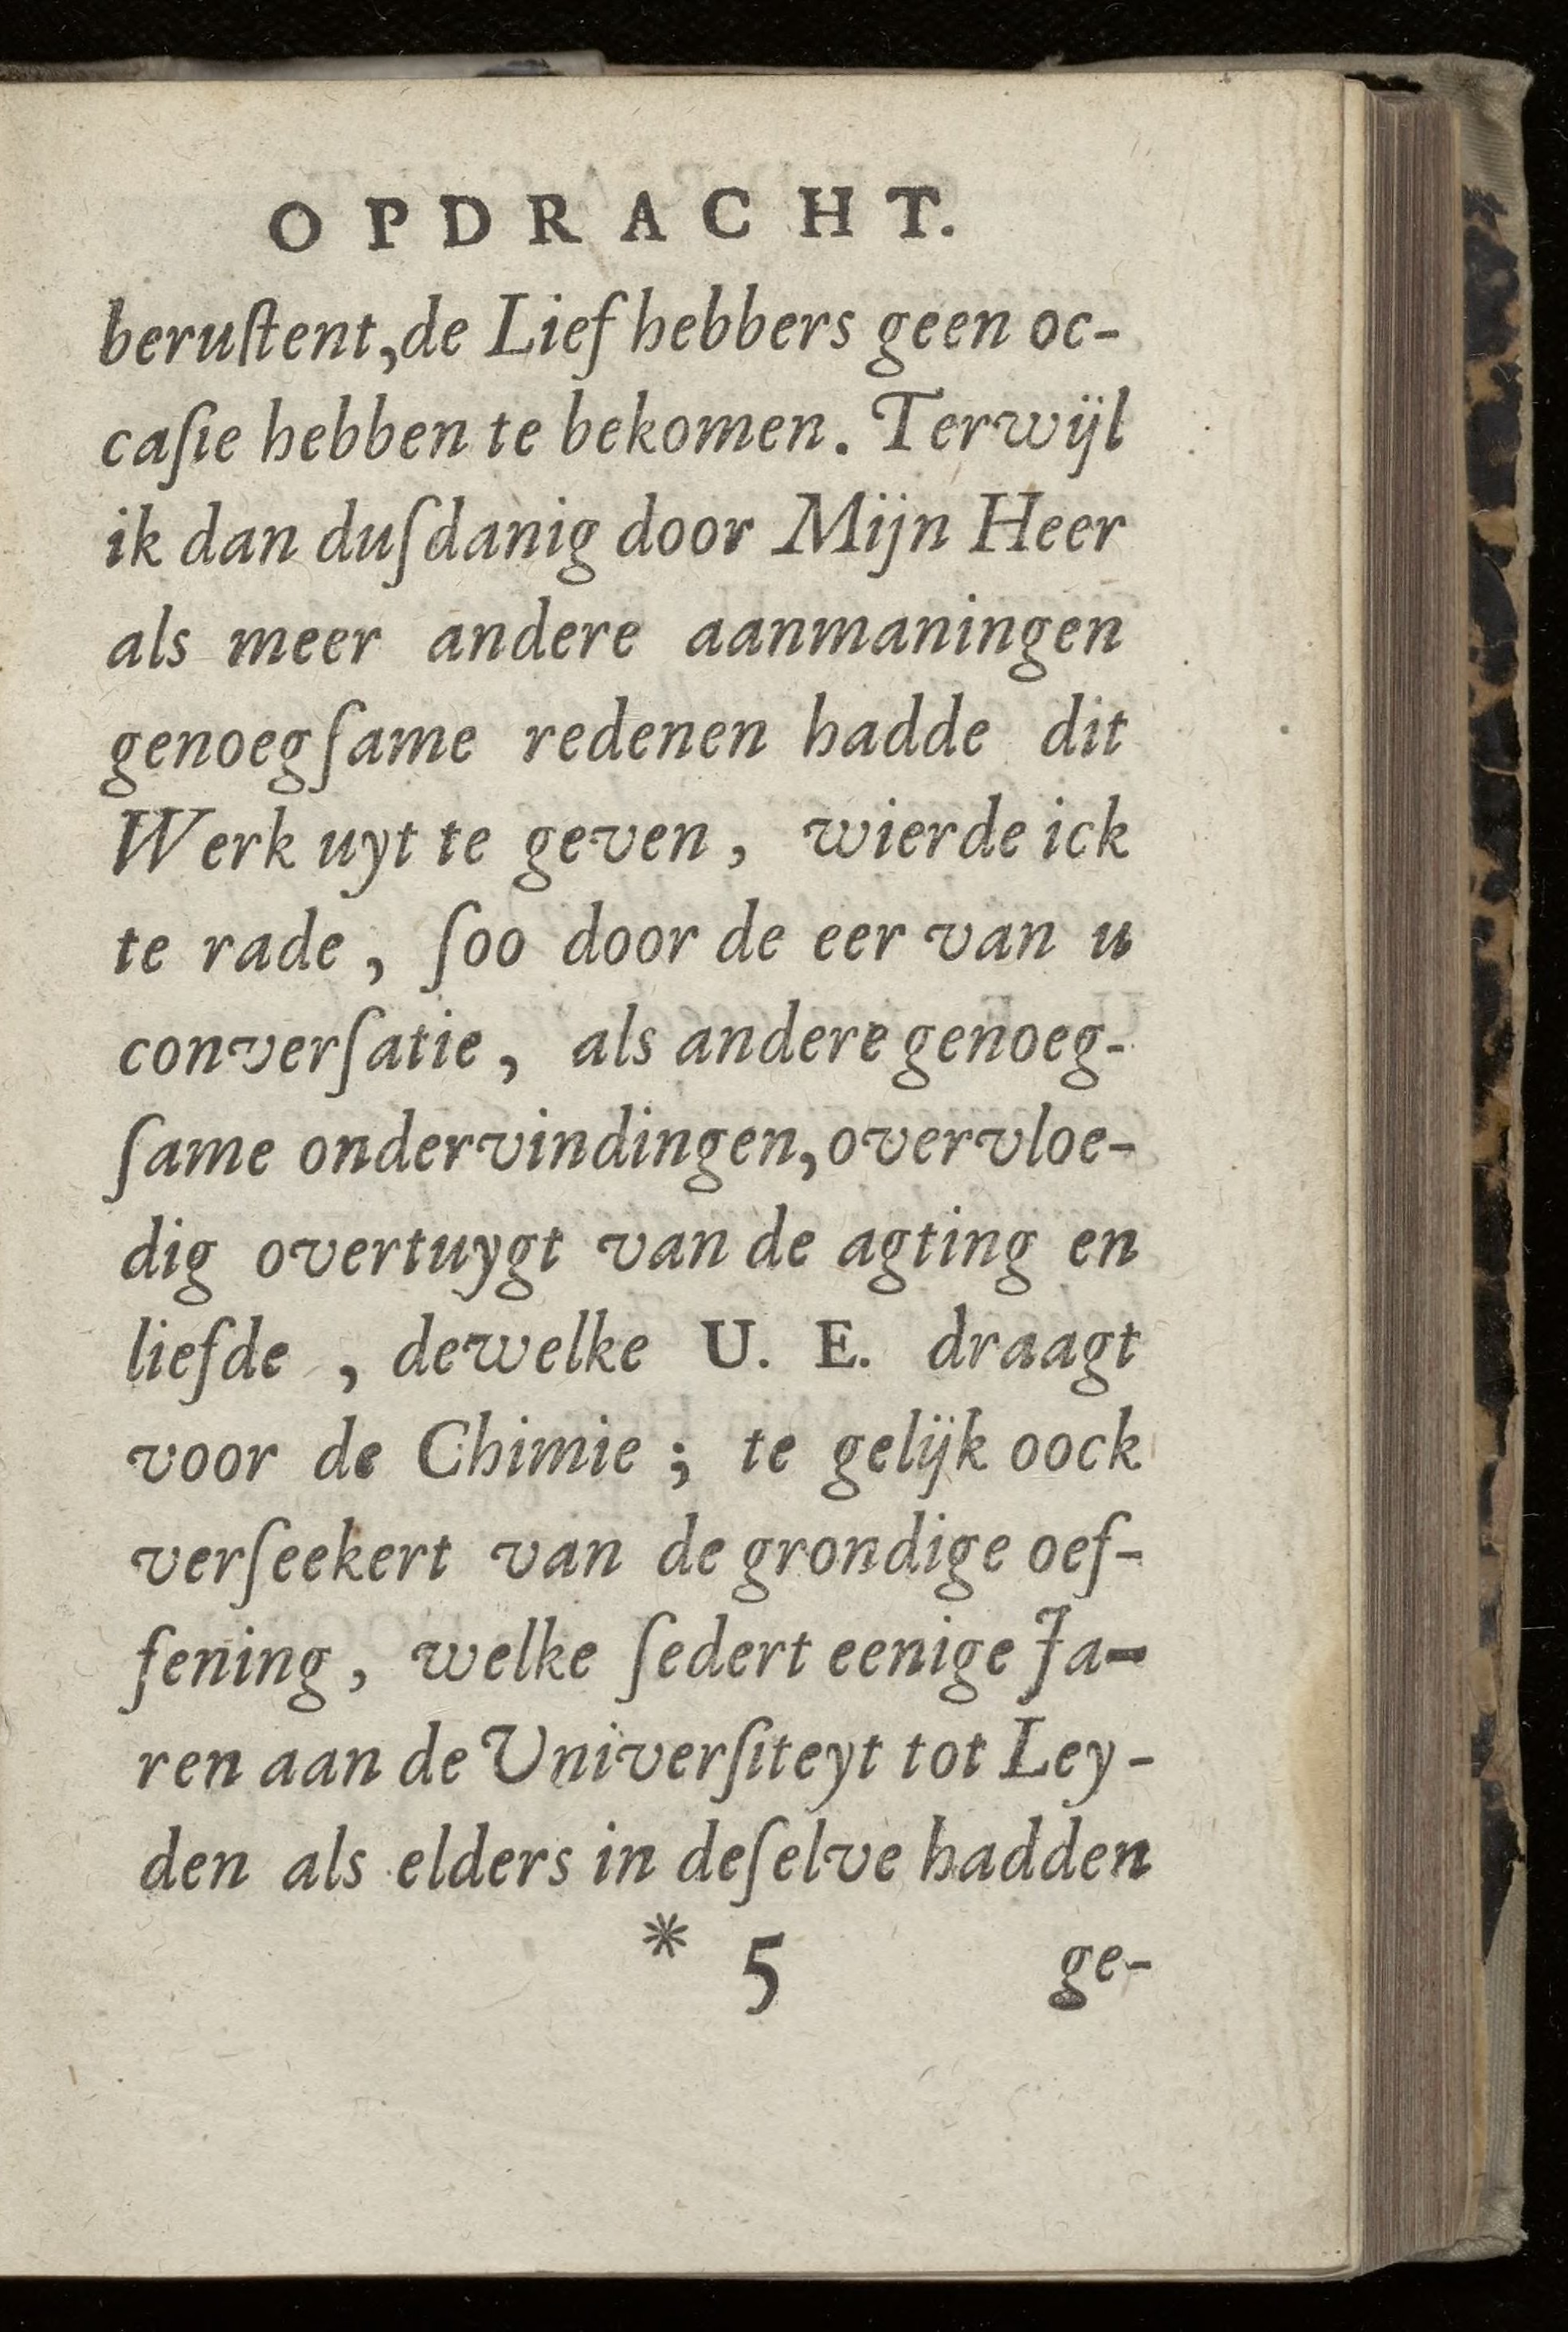 OPDRACHT.
beruſtent, de Liefhebbers geen oc-
caſie hebben te bekomen. Terwijl
ik dan duſdanig door Mijn Heer
als meer andere aanmaningen
genoegſame redenen hadde dit
Werk uyt te geven, wierde ick
te rade, ſoo door de eer van u
converſatie, als andere genoeg-
ſame ondervindingen, overvloe-
dig overtuygt van de agting en
liefde, dewelke U. E. draagt
voor de Chimie; te gelijk oock
verſeekert van de grondige oef-
fening, welke ſedert eenige Ja-
ren aan de Univerſiteyt tot Ley-
den als elders in deſelve hadden
* 5 ge-